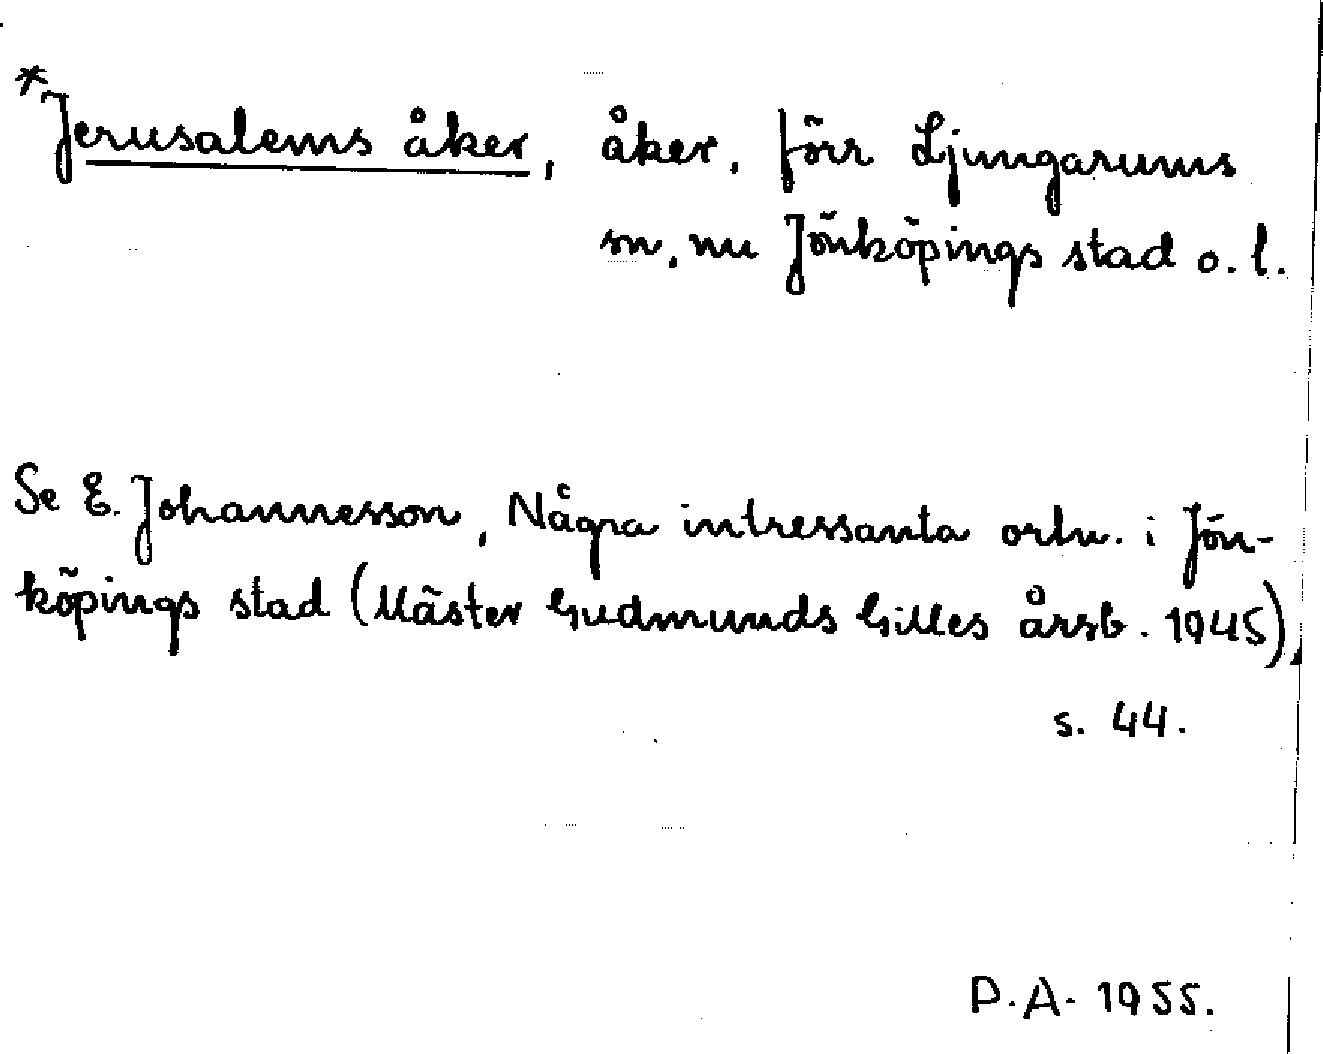 *Jerusalems åker, åker, förr Ljungarums
sn, nu Jönköpings stad o. l.
Se E. Johannesson, Några intressanta ortn. i Jön-
köpings stad (Mäster Gudmunds Gilles årsb. 1945),
s. 44.
P.A. 1955.